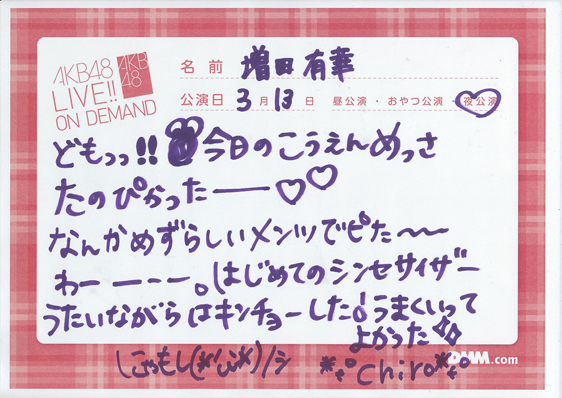 AKB48
LIVE!!
ON DEMAND
AKB
48
名前 増田有華
公演日 3月13日 昼公演・おやつ公演・夜公演
どもっっ!! 今日のこうえんめっさ
たのぴかったー♡♡
なんかめずらしいメンツでビた〜〜
わーーー。はじめてのシンセサイザー
うたいながらはキンチョーした!うまくいって
よかった
*。°chiro*。°
DMM.com